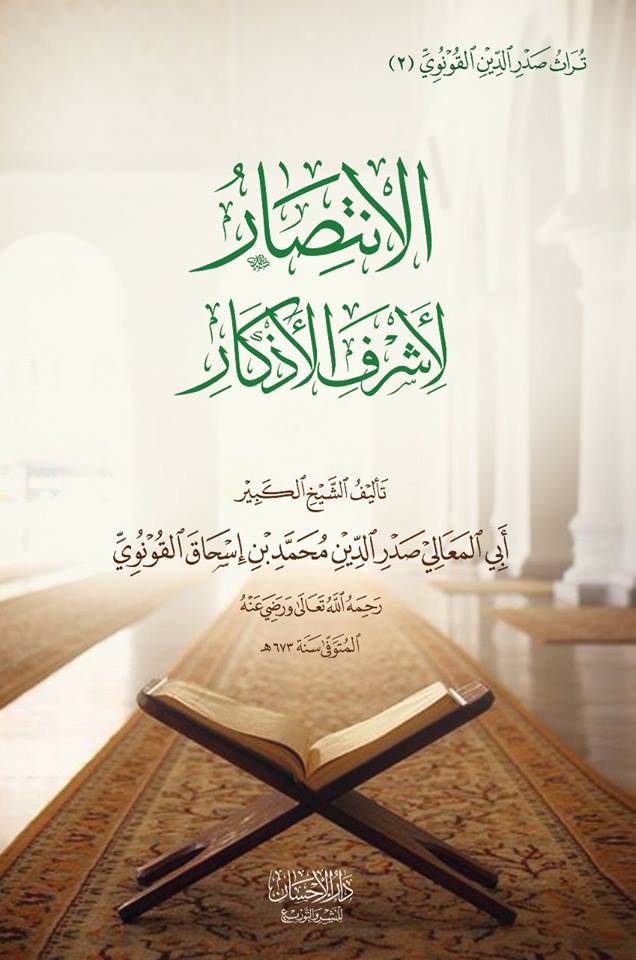 تُرَاثُ صَدْرِ ٱلدِّيْنِ ٱلقُوْنَوِيِّ (٢)
الانتِصَارُ
لِأَشْرَفِ الأَذْكَارِ
تَأْلِيْفُ الشَّيْخِ الكَبِيْرِ
أَبِي المَعَالِيْ صَدْرِ الدِّيْنِ مُحَمَّدِ بْنِ إِسْحَاقَ القُوْنَوِيِّ
رَحِمَهُ اللَّهُ تَعَالَى وَرَضِيَ عَنْهُ
المُتَوَفَّى سَنَة ٦٧٣هـ
دَارُ الإِحْسَان
لِلنَّشْرِ وَالتَّوْزِيْعِ